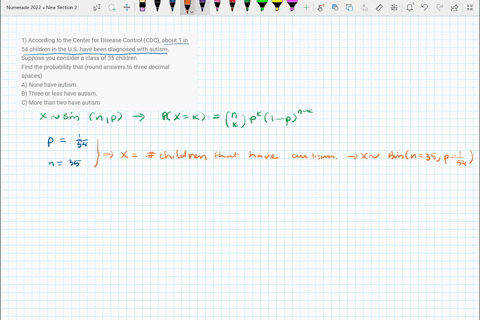 Numerade 2022 > New Section 2
1) According to the Center for Disease Control (CDC), about 1 in
54 children in the U.S. have been diagnosed with autism.
Suppose you consider a class of 35 children.
Find the probability that (round answers to three decimal
spaces)
A) None have autism.
B) Three or less have autism.
C) More than two have autism
X ~ Bin (n,p) → P(X=k) = (n k) p^k (1-p)^n-k
p = 1/54
n = 35
⇒ X = # children that have autism. → X~ Bin(n=35, p=1/54)